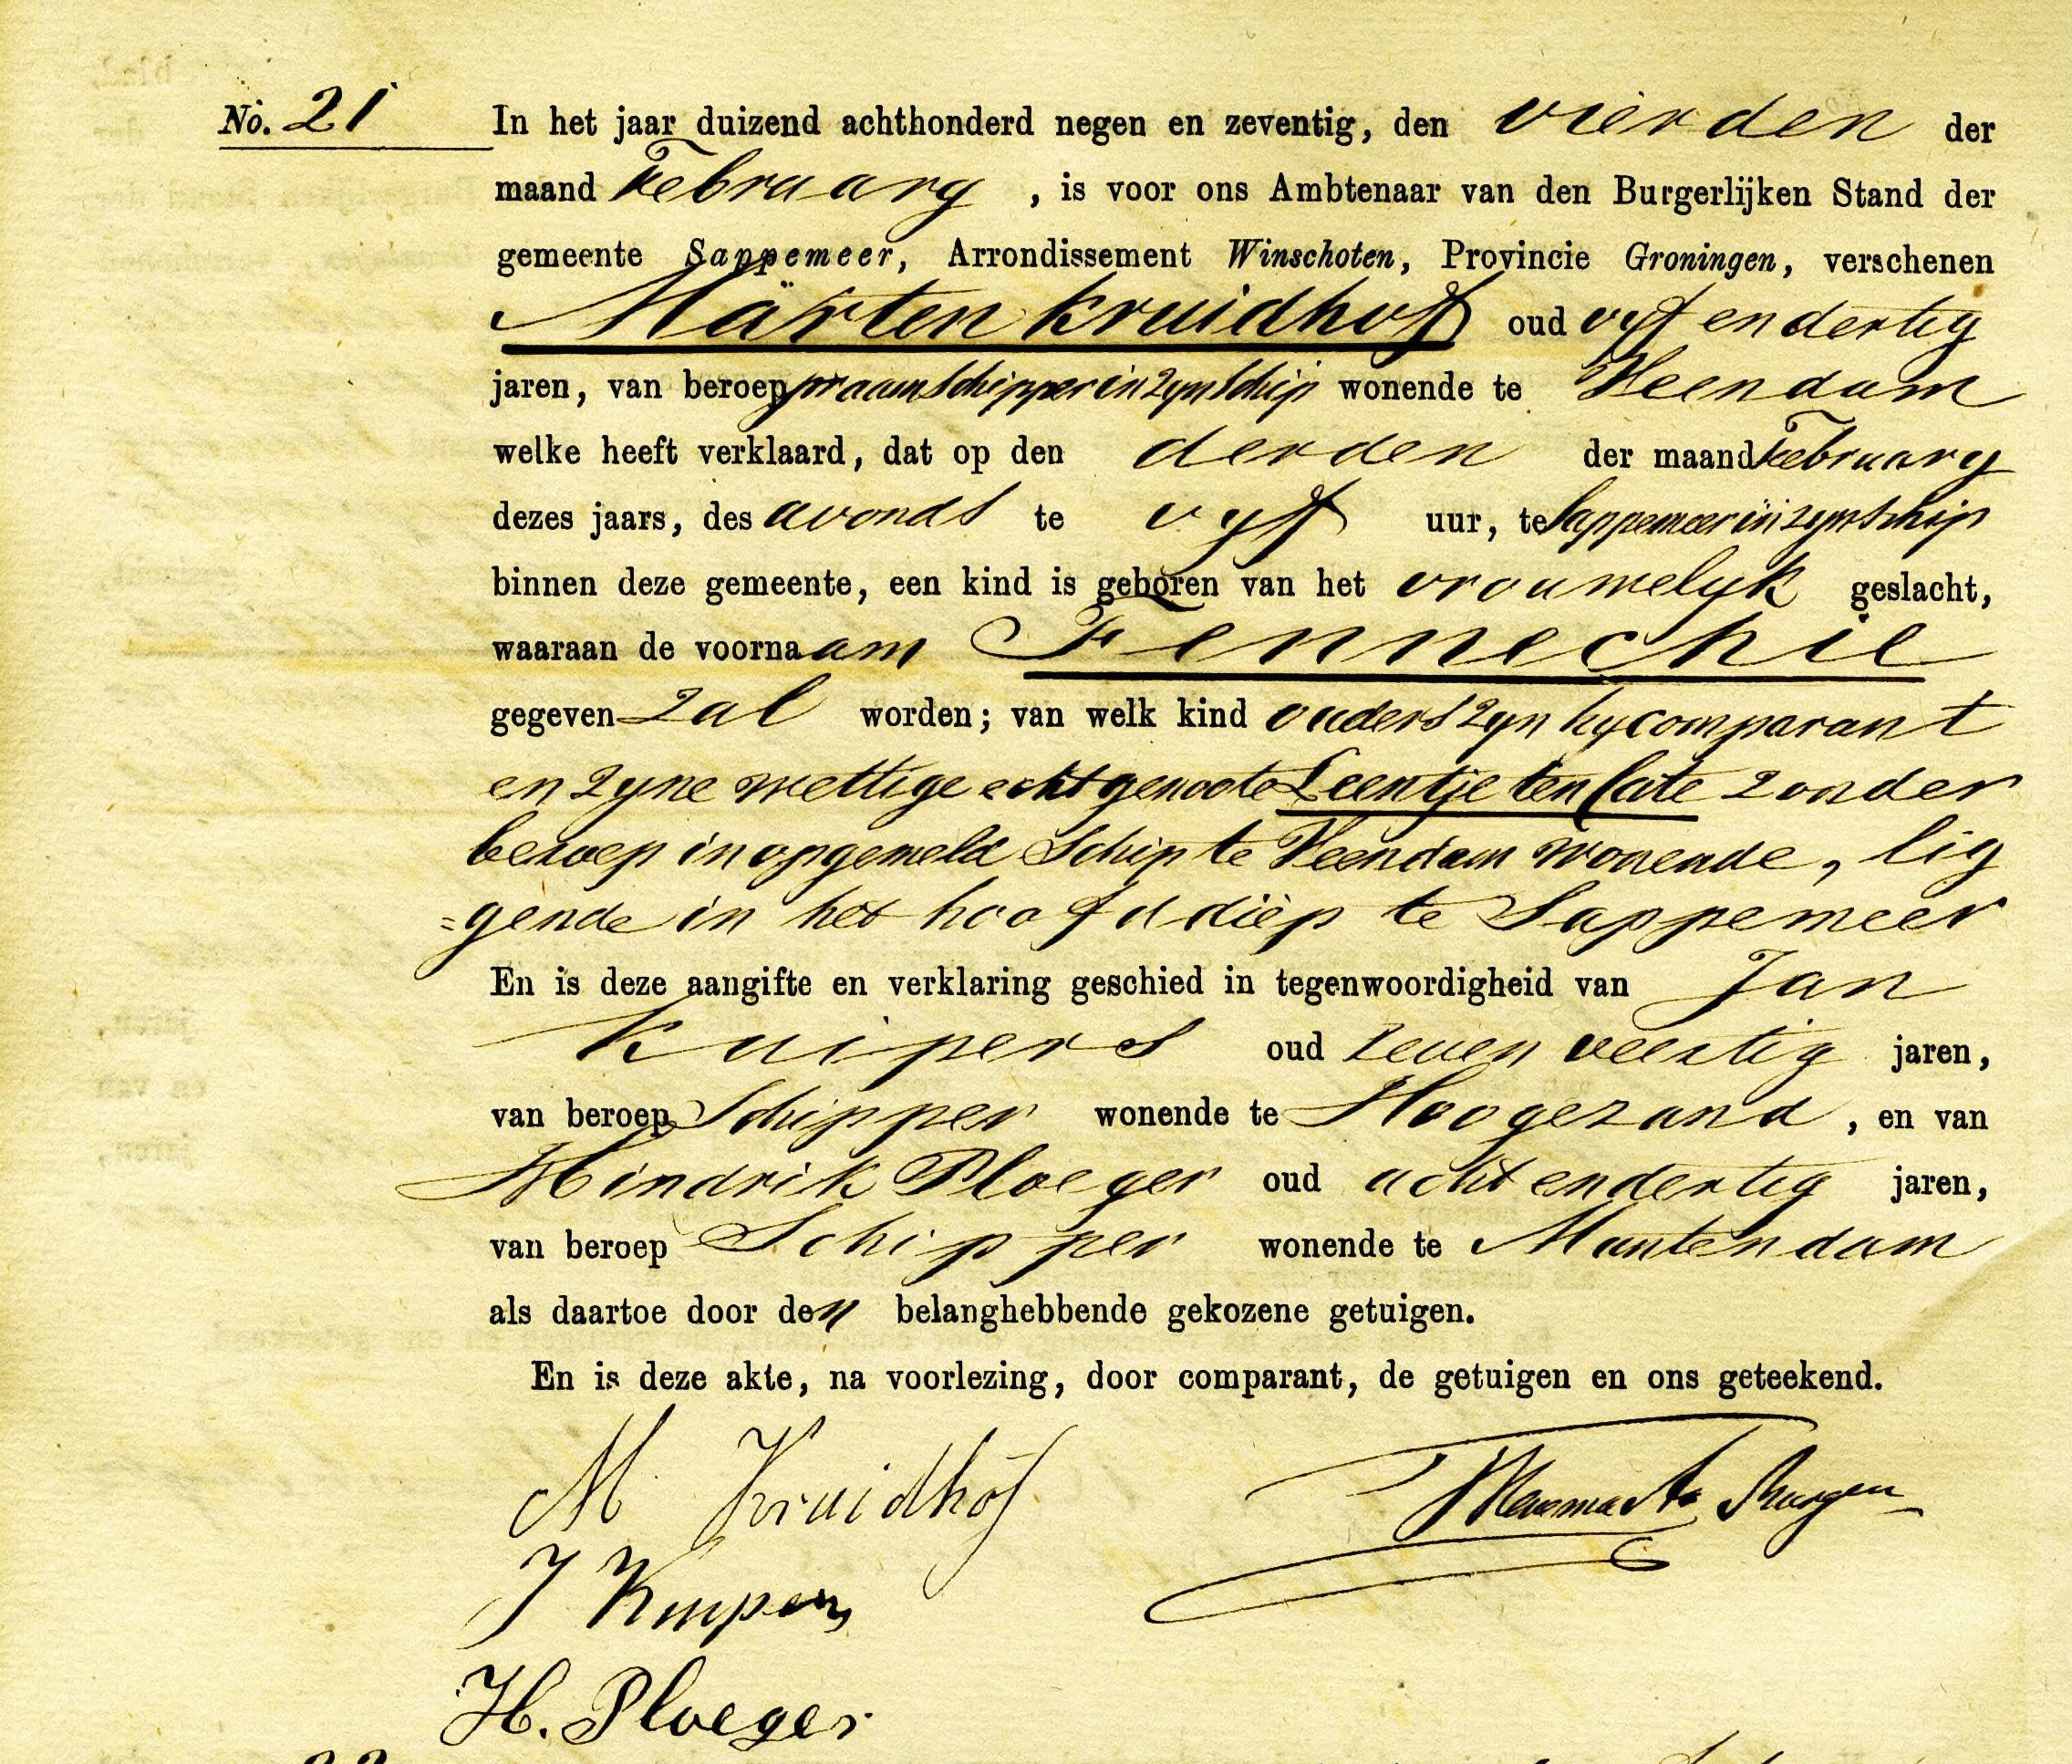 No. 21 In het jaar duizend achthonderd negen en zeventig, den vierden der
maand February, is voor ons Ambtenaar van den Burgerlijken Stand der
gemeente Sappemeer, Arrondissement Winschoten, Provincie Groningen, verschenen
Marten Kruidhof oud vyf en dertig
jaren, van beroep praamschipper in zyn schip wonende te Veendam
welke heeft verklaard, dat op den derden der maand February
dezes jaars, des avonds te vyf uur, te Sappemeer in zyn schip
binnen deze gemeente, een kind is geboren van het vrouwelyk geslacht,
waaraan de voornaam Fennechie
gegeven zal worden; van welk kind ouders zyn hy comparant
en zyne wettige echtgenoote Leentje ten Cate zonder
beroep in opgemeld schip te Veendam wonende, lig
=gende in het hoofddiep te Sappemeer
En is deze aangifte en verklaring geschied in tegenwoordigheid van Jan
Kuipers oud zeven veertig jaren,
van beroep Schipper wonende te Hoogezand, en van
Hindrik Ploeger oud acht en dertig jaren,
van beroep Schipper wonende te Muntendam
als daartoe door den belanghebbende gekozene getuigen.
En is deze akte, na voorlezing, door comparant, de getuigen en ons geteekend.
M Kruidhof
J Kuipers
H. Ploeger